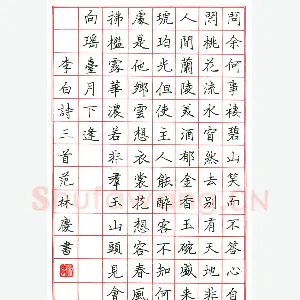 問余何事棲碧山笑而不答心自
閒桃花流水窅然去別有天地非
人間蘭陵美酒郁金香玉碗盛來
琥珀光但使主人能醉客不知何
處是他鄉雲想衣裳花想容春風
拂檻露華濃若非羣玉山頭見會
向瑤臺月下逢
李白詩三首范林慶書